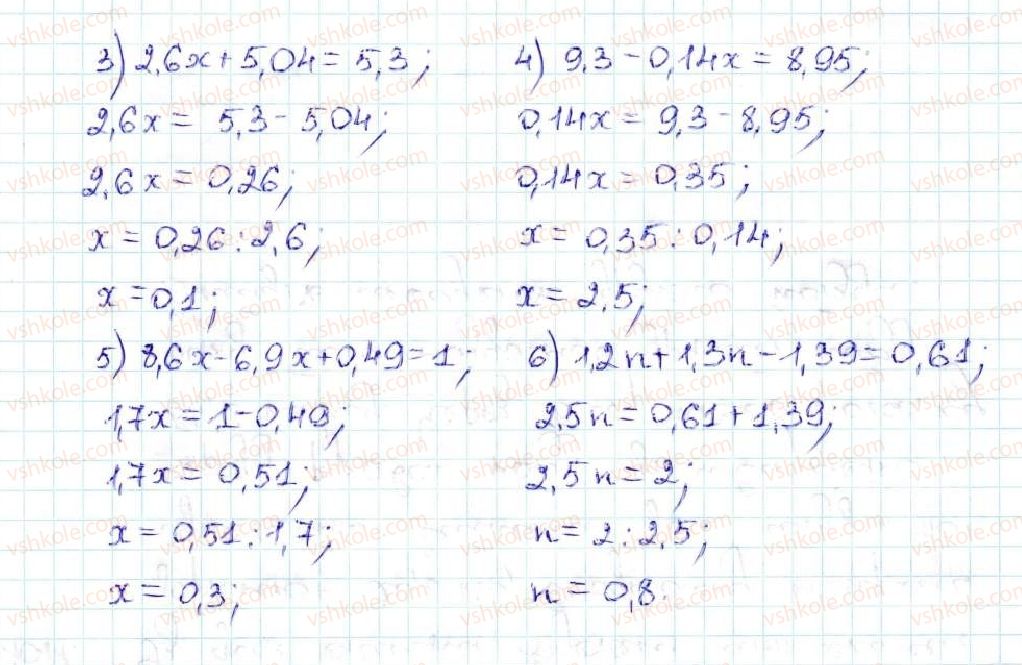 3) 2,6x + 5,04 = 5,3;
2,6x = 5,3 - 5,04;
2,6x = 0,26;
x = 0,26 : 2,6;
x = 0,1;
4) 9,3 - 0,14x = 8,95;
0,14x = 9,3 - 8,95;
0,14x = 0,35;
x = 0,35 : 0,14;
x = 2,5;
5) 8,6x - 6,9x + 0,49 = 1;
1,7x = 1 - 0,49;
1,7x = 0,51;
x = 0,51 : 1,7;
x = 0,3;
6) 1,2n + 1,3n - 1,39 = 0,61;
2,5n = 0,61 + 1,39;
2,5n = 2;
n = 2 : 2,5;
n = 0,8.
vshkole.com